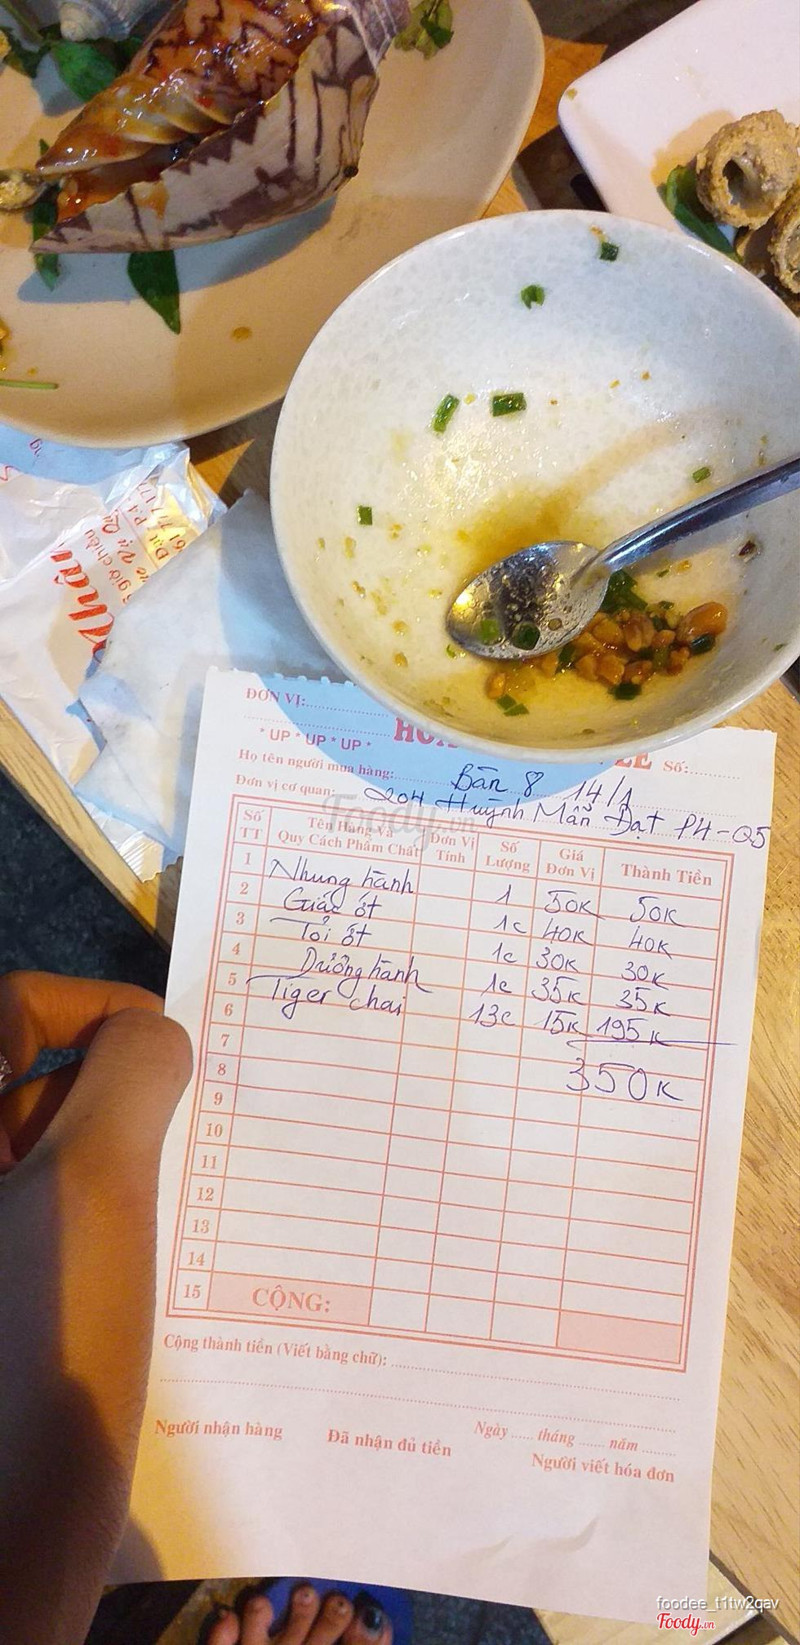 ĐƠN VỊ:
* UP * UP * UP *
Số:
Họ tên người mua hàng: Bàn 8 14/1
Đơn vị cơ quan: 204 Huỳnh Mẫn Đạt P4-Q5
Số TT Tên Hàng và Quy Cách Phẩm Chất Đơn Vị Tính Số Lượng Giá Đơn Vị Thành Tiền
1 Nhung hành 1 50K 50K
2 Giác ớt 1c 40K 40K
3 Tỏi ớt 1c 30K 30K
4 Dưỡng hành 1c 35K 35K
5 Tiger chai 13c 15K 195K
6
7 350K
8
9
10
11
12
13
14
15 CỘNG:
Cộng thành tiền (Viết bằng chữ):
Ngày tháng năm
Người nhận hàng Đã nhận đủ tiền Người viết hóa đơn
Foody.vn
foodee_t1tw2qav
Foody.vn